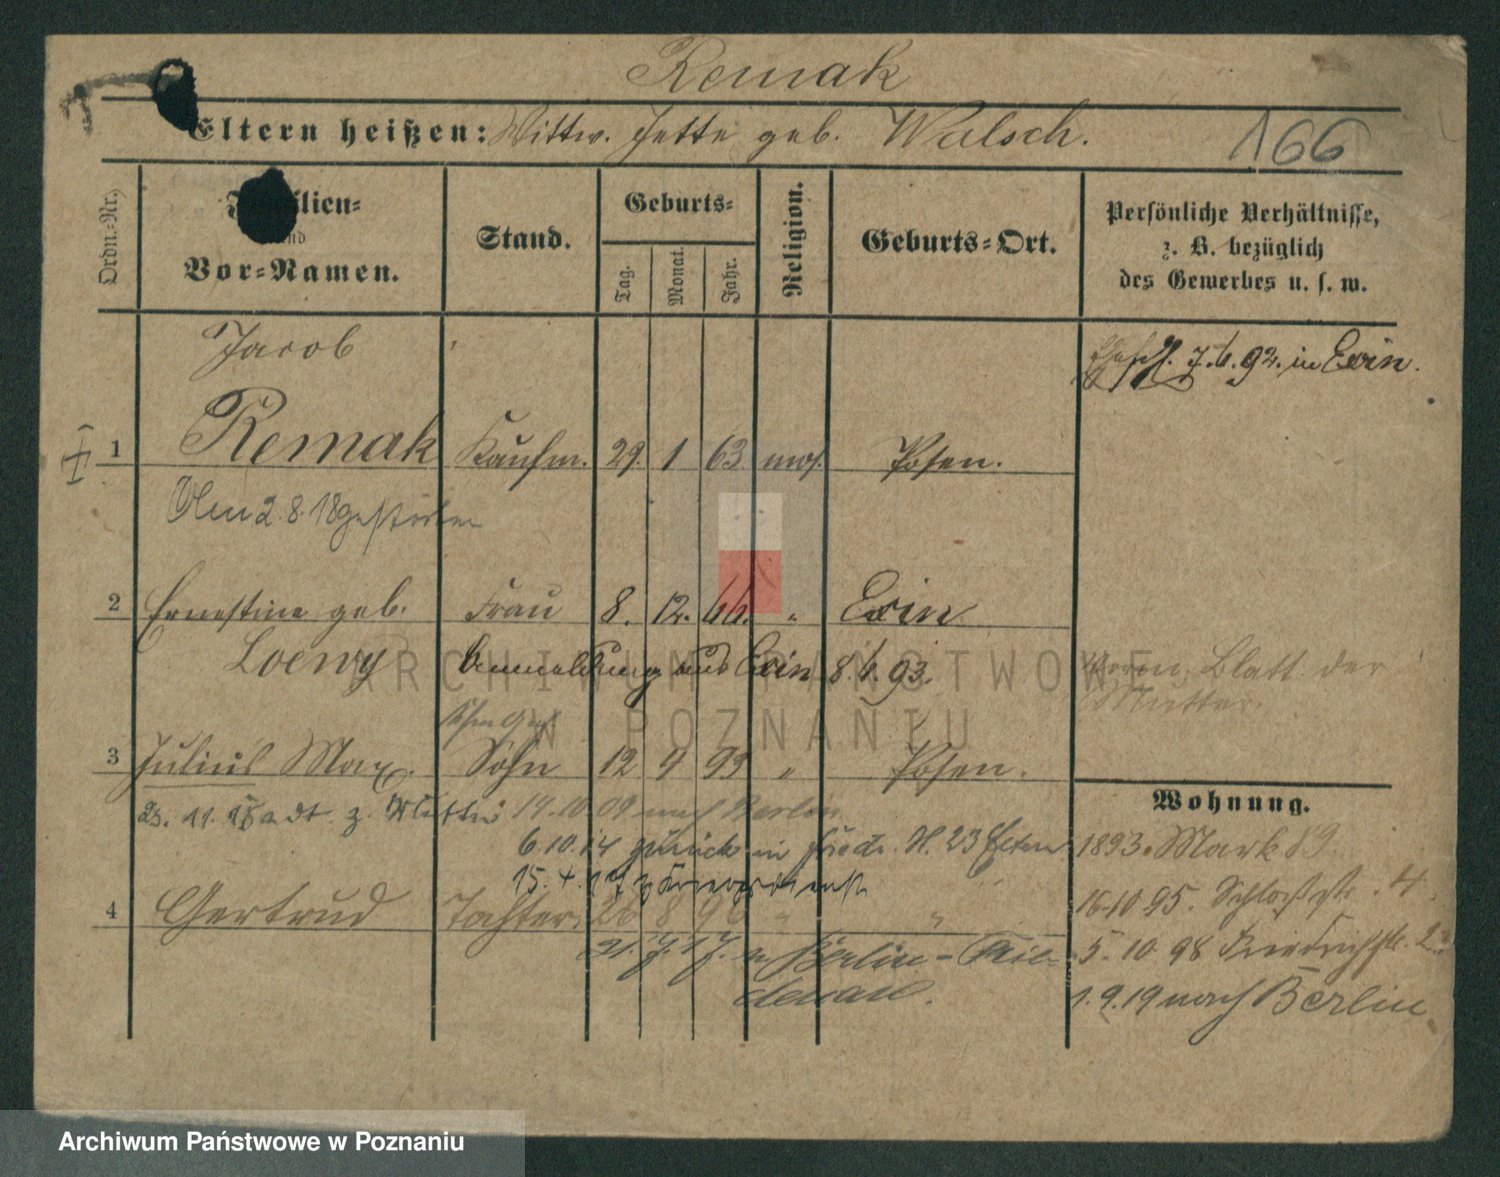 Remak
Eltern heißen: Wittw. Jette geb. Walsch.
166
Ordn.-Nr.
Familien-
und
Vor-Namen.
Stand.
Geburts-
Tag.
Monat.
Jahr.
Religion.
Geburts-Ort.
Persönliche Verhältnisse,
z. B. bezüglich
des Gewerbes u. s. w.
Jacob
Ehesch. 7.6.92. in Exin.
1 Remak Kaufm. 29. 1 63 mos. Posen.
Am 2.8.18 gestorben
2 Ernestine geb. Frau 8. 12. 66. " Exin
Loewy Anmeldung aus Exin 8.6.93.
Norm. Blatt der
Mutter.
3 Julius Max. Sohn 12 9 93 " Posen.
Wohnung.
23. 11. 18 a dt. z. Mutter 14.10.09 nach Berlin
6.10.14 zurück in Friedr. 23 Eltern
15. 4. 17 z Kriegsdienst
4 Gertrud Tochter. 26 8 96 " "
21. 7. 17. n. Berlin-Frie-
denau.
1893. Mark 89
16.10 95. Schloßstr. 4.
5. 10. 98 Friedrichstr. 23
1.9.19 nach Berlin
ARCHIWUM PAŃSTWOWE
W POZNANIU
Archiwum Państwowe w Poznaniu